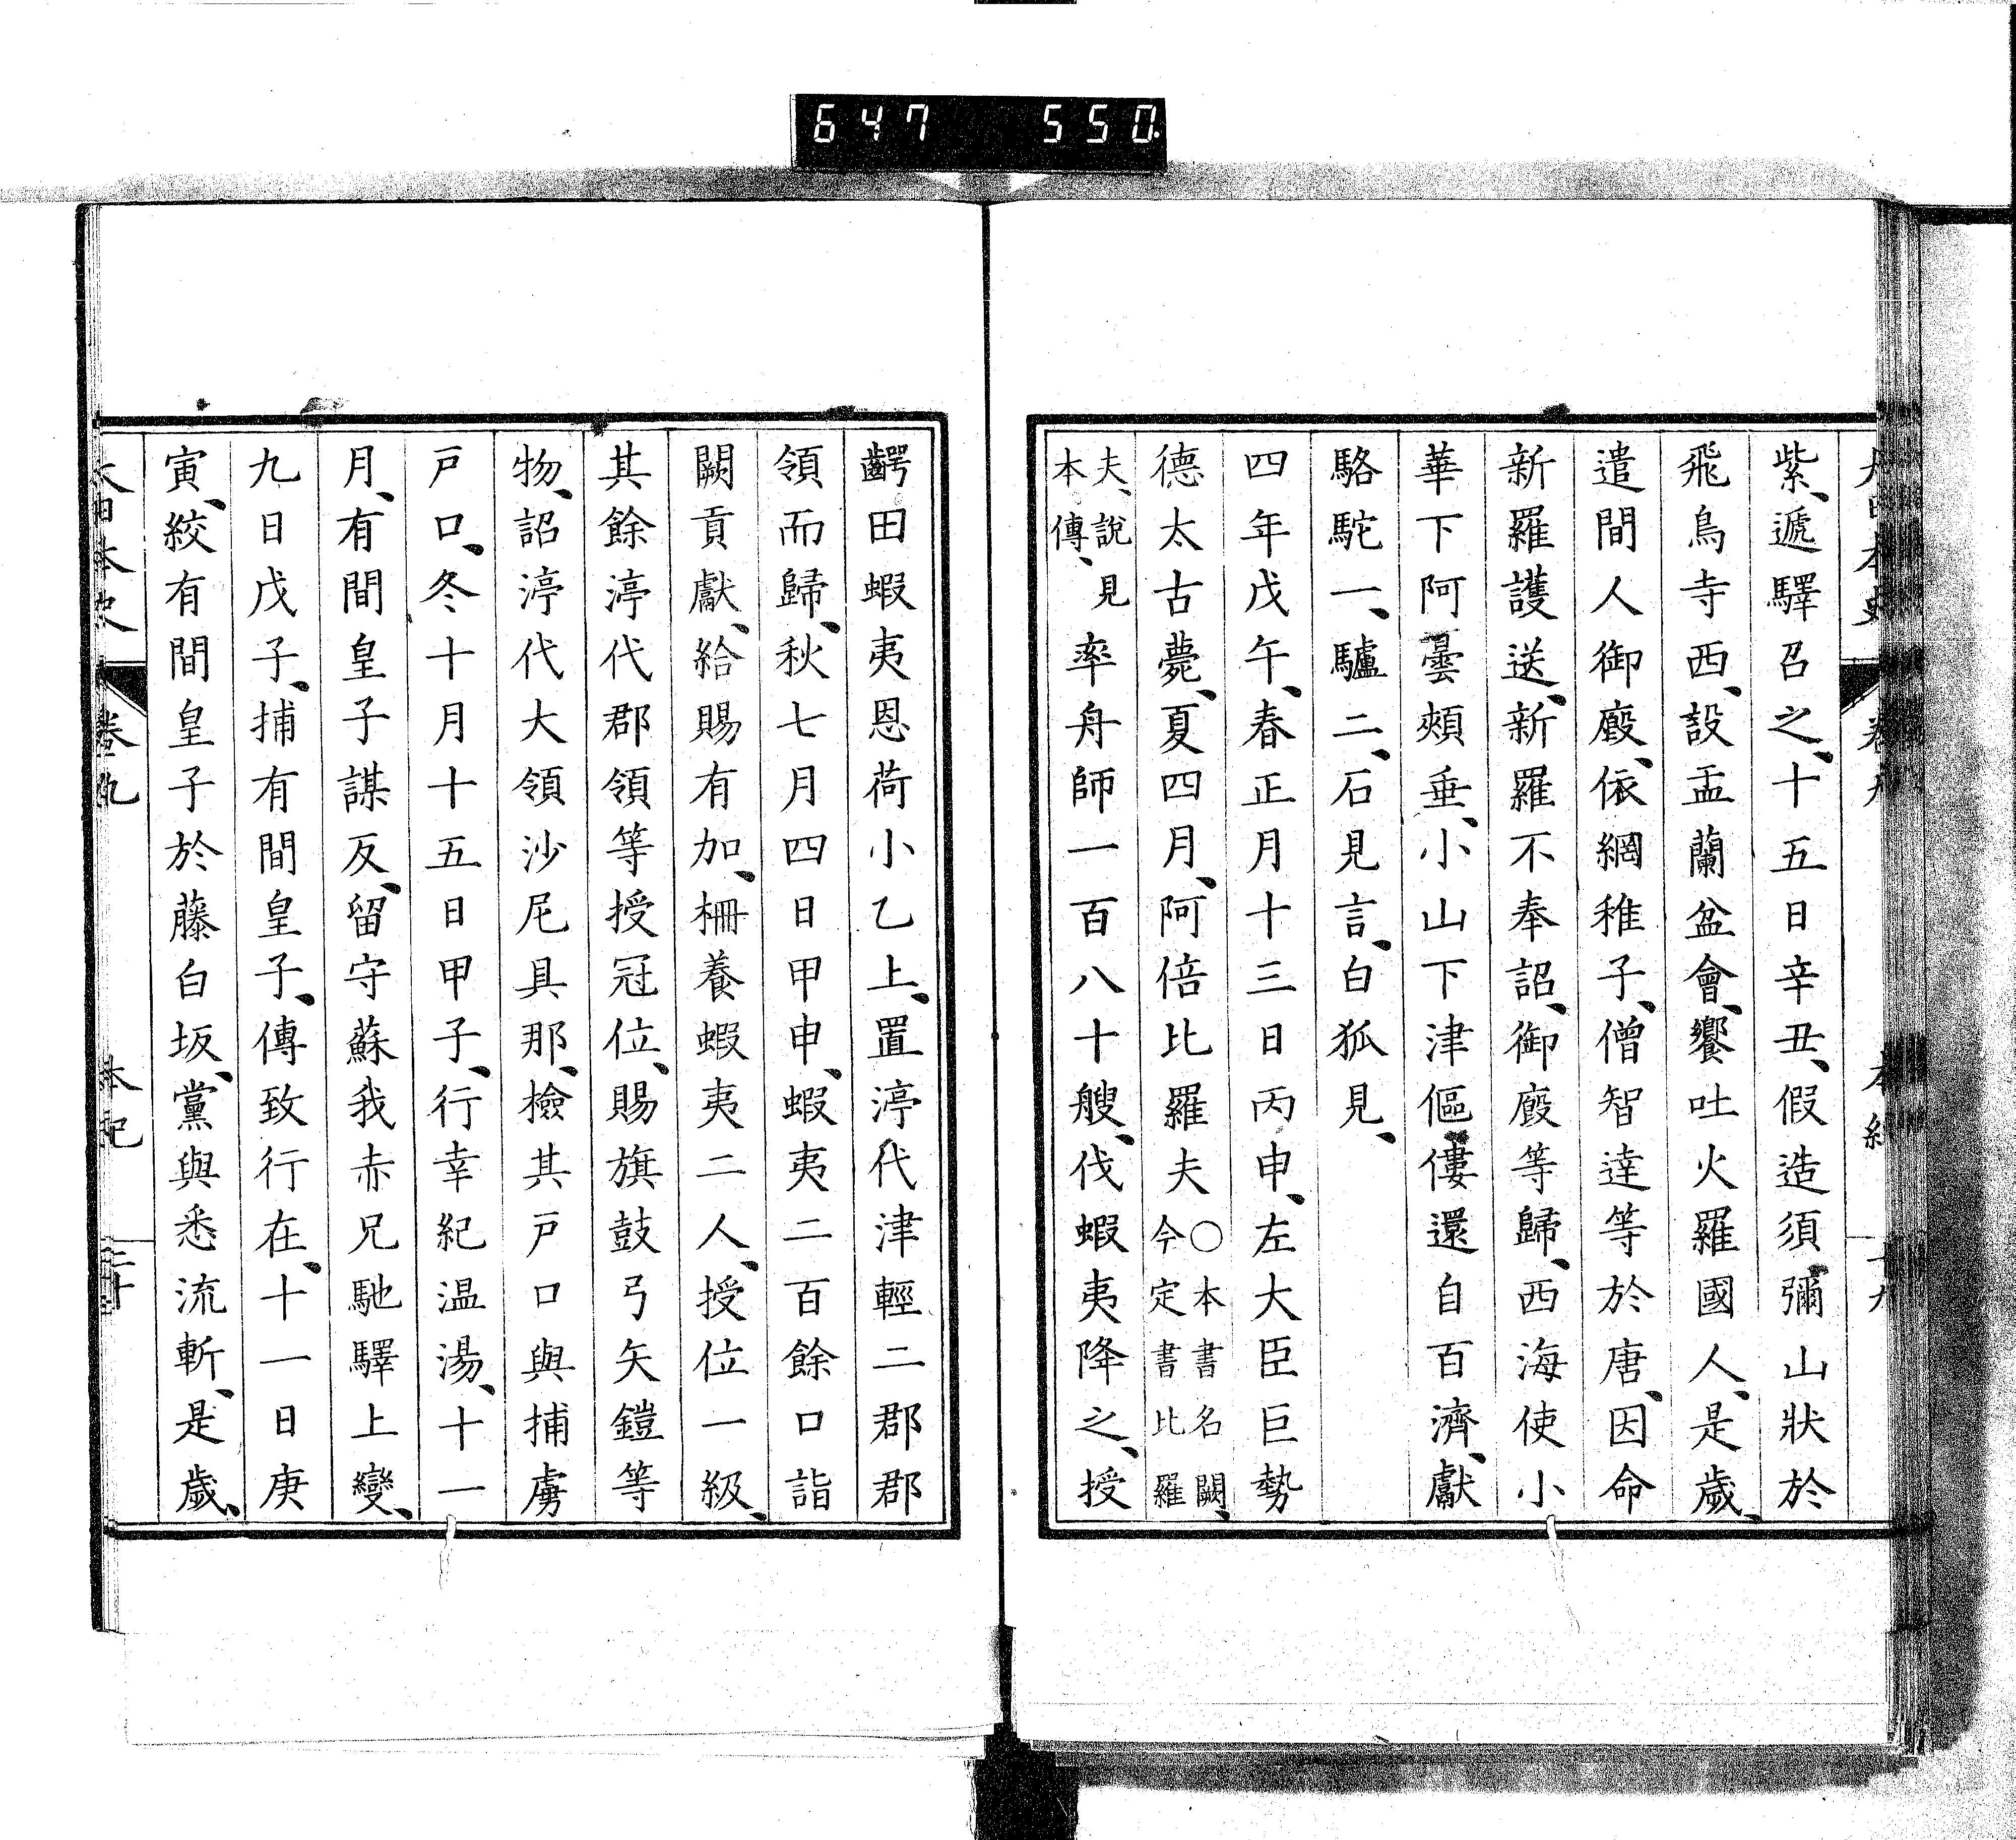 647 550
紫、遞驛召之、十五日辛丑、假造須彌山狀於
飛鳥寺西、設盂蘭盆會、饗吐火羅國人、是歲、
遣間人御廏、依網稚子、僧智達等於唐、因命
新羅護送、新羅不奉詔、御廏等歸、西海使小
華下阿曇頰垂、小山下津傴僂還自百濟、獻
駱駝一、驢二、石見言、白狐見、
四年戊午、春正月十三日丙申、左大臣巨勢
德太古薨、夏四月、阿倍比羅夫○本書名闕、今定書比羅
夫、說見本傳、率舟師一百八十艘、伐蝦夷降之、授
齶田蝦夷恩荷小乙上、置渟代津輕二郡郡
領而歸、秋七月四日甲申、蝦夷二百餘口詣
闕貢獻、給賜有加、柵養蝦夷二人、授位一級、
其餘渟代郡領等授冠位、賜旗鼓弓矢鎧等
物、詔渟代大領沙尼具那、檢其戶口與捕虜
戶口、冬十月十五日甲子、行幸紀温湯、十一
月、有間皇子謀反、留守蘇我赤兄馳驛上變、
九日戊子、捕有間皇子、傳致行在、十一日庚
寅、絞有間皇子於藤白坂、黨與悉流斬、是歲、
大日本史 卷九 本紀 二十